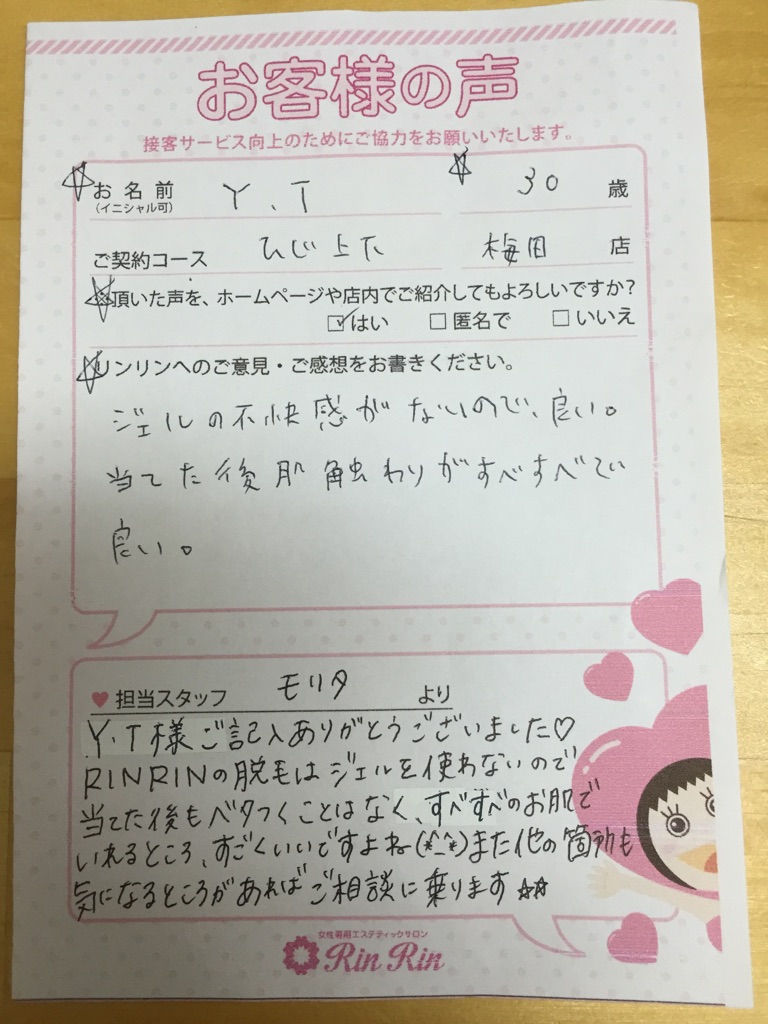 お客様の声
接客サービス向上のためにご協力をお願いいたします。
お名前 Y.T 30 歳
(イニシャル可)
ご契約コース ひじ上下 梅田 店
頂いた声を、ホームページや店内でご紹介してもよろしいですか?
はい 匿名で いいえ
リンリンへのご意見・ご感想をお書きください。
ジェルの不快感がないので、良い。
当てた後肌触わりがすべすべで
良い。
担当スタッフ モリタ より
Y.T様ご記入ありがとうございました♡
RINRINの脱毛はジェルを使わないので
当てた後もベタつくことはなく、すべすべのお肌で
いれるところ、すごくいいですよね(*^_^*)また他の箇所も
気になるところがあればご相談に乗ります☆☆
女性専用エステティックサロン
Rin Rin